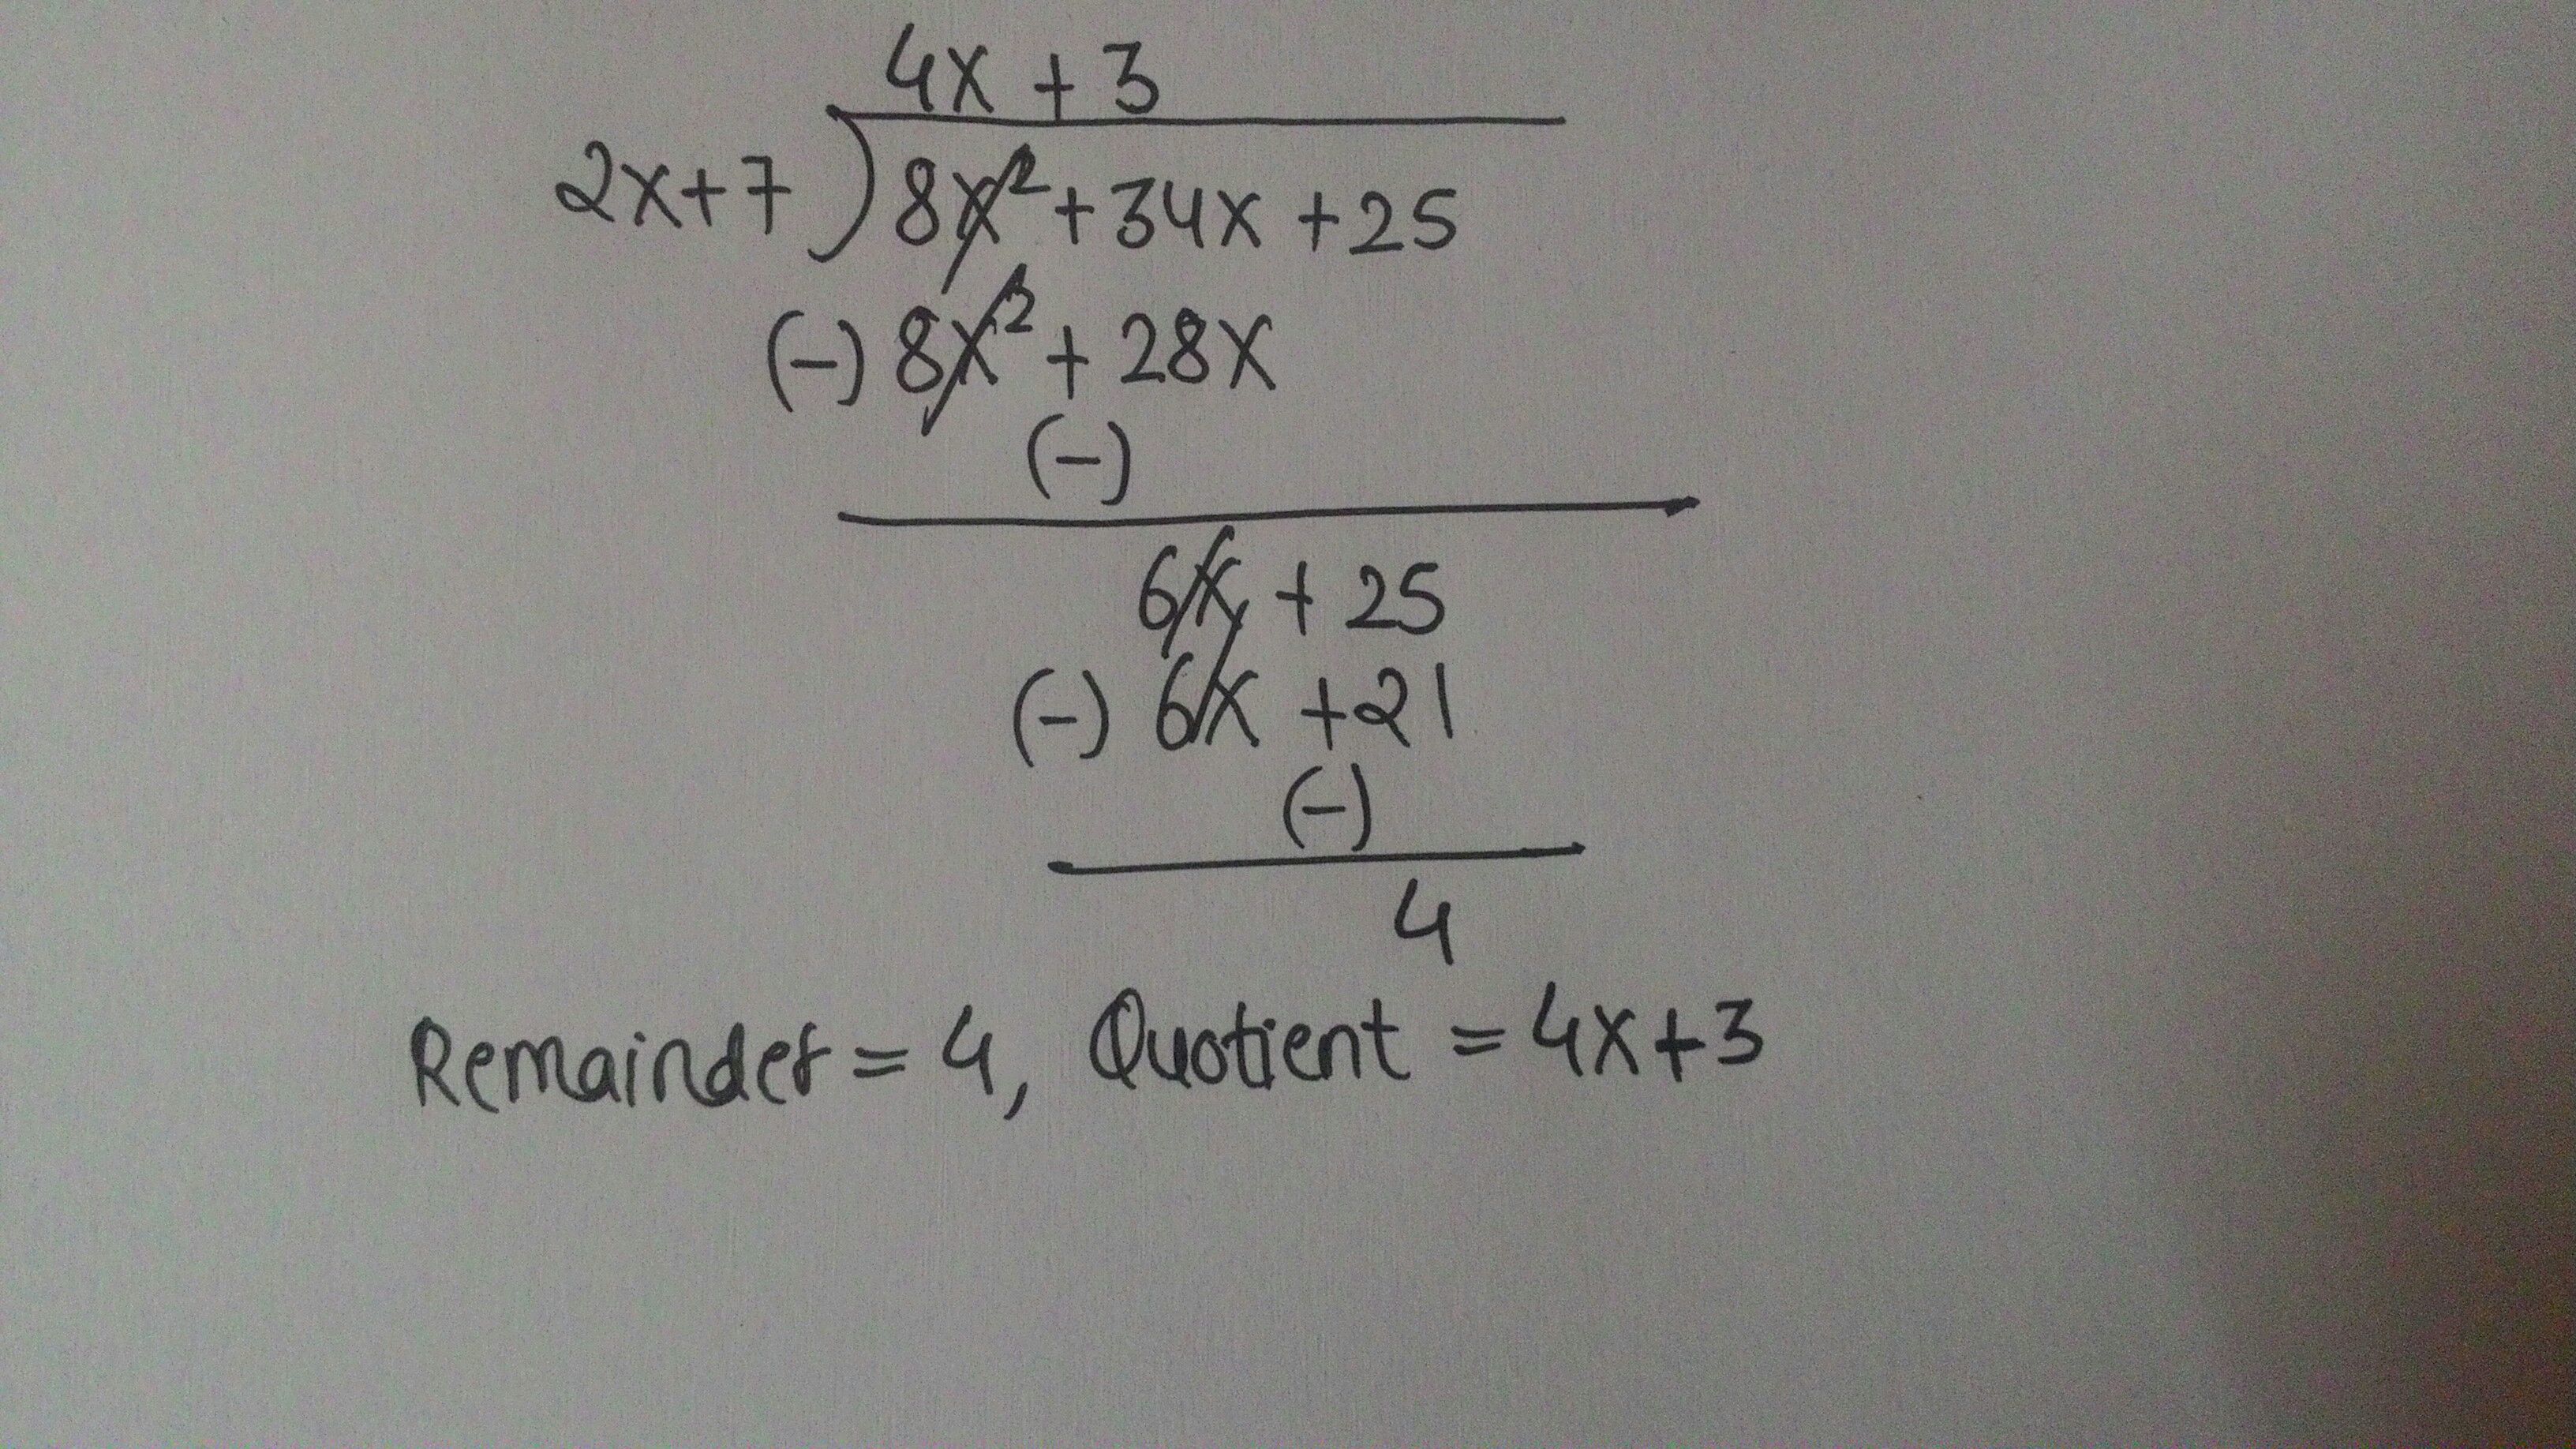 4x + 3
2x+7 ) 8x² + 34x + 25
(-) 8x² + 28x
(-)
6x + 25
(-) 6x + 21
(-)
4
Remainder = 4, Quotient = 4x+3